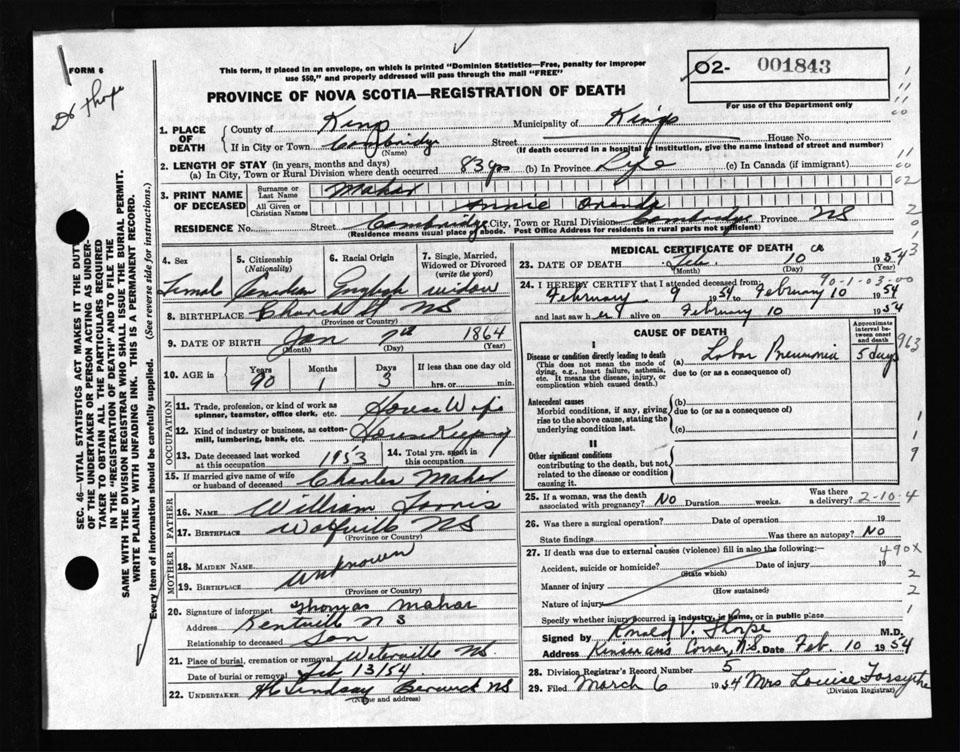 FORM 6
Dr Thorpe
This form, if placed in an envelope, on which is printed "Dominion Statistics—Free, penalty for improper
use $50," and properly addressed will pass through the mail "FREE"
O2- 001843
For use of the Department only
PROVINCE OF NOVA SCOTIA—REGISTRATION OF DEATH
SEC. 46—VITAL STATISTICS ACT MAKES IT THE DUTY
OF THE UNDERTAKER OR PERSON ACTING AS UNDER-
TAKER TO OBTAIN ALL THE PARTICULARS REQUIRED
IN THE "REGISTRATION OF DEATH" AND TO FILE THE
SAME WITH THE DIVISION REGISTRAR WHO SHALL ISSUE THE BURIAL PERMIT.
WRITE PLAINLY WITH UNFADING INK. THIS IS A PERMANENT RECORD.
Every item of information should be carefully supplied. (See reverse side for instructions.)
1. PLACE OF DEATH County of Kings Municipality of Kings
If in City or Town Cambridge Street House No.
(Name) (If death occurred in a hospital or institution, give the name instead of street and number)
2. LENGTH OF STAY (in years, months and days)
(a) In City, Town or Rural Division where death occurred 83 yrs (b) In Province Life (c) In Canada (if immigrant)
3. PRINT NAME OF DECEASED Surname or Last Name Mahar
All Given or Christian Names Annie
RESIDENCE No. Street Cambridge City, Town or Rural Division Cambridge Province NS
(Residence means usual place of abode. Post Office Address for residents in rural parts not sufficient)
4. Sex 5. Citizenship (Nationality) 6. Racial Origin 7. Single, Married, Widowed or Divorced (write the word)
Female Canadian English widow
8. BIRTHPLACE Church St NS
(Province or Country)
9. DATE OF BIRTH Jan 7th 1864
(Month) (Day) (Year)
10. AGE in Years Months Days If less than one day old
90 1 3 hrs. or min.
OCCUPATION
11. Trade, profession, or kind of work as spinner, teamster, office clerk, etc. House Wife
12. Kind of industry or business, as cotton-mill, lumbering, bank, etc. House Keeping
13. Date deceased last worked at this occupation 1953 14. Total yrs. spent in this occupation
15. If married give name of wife or husband of deceased Charles Mahar
FATHER
16. Name William
17. Birthplace Wolfville NS
(Province or Country)
MOTHER
18. Maiden Name unknown
19. Birthplace
(Province or Country)
20. Signature of informant Thomas Mahar
Address Kentville N S
Relationship to deceased Son
21. Place of burial, cremation or removal Waterville NS.
Date of burial or removal Feb 13/54
22. UNDERTAKER Lindsay Berwick NS
(Name and address)
MEDICAL CERTIFICATE OF DEATH
23. DATE OF DEATH Feb. 10 1954
(Month) (Day) (Year)
24. I HEREBY CERTIFY that I attended deceased from
February 9 1954 to February 10 1954
and last saw her alive on February 10 1954
CAUSE OF DEATH
Approximate interval between onset and death
I
Disease or condition directly leading to death (a) Lobar Pneumonia 5 days
(This does not mean the mode of dying, e.g., heart failure, asthenia, etc. It means the disease, injury, or complication which caused death.)
due to (or as a consequence of)
Antecedent causes (b)
Morbid conditions, if any, giving rise to the above cause, stating the underlying condition last.
due to (or as a consequence of)
(c)
II
Other significant conditions
contributing to the death, but not related to the disease or condition causing it.
25. If a woman, was the death associated with pregnancy? NO Duration weeks. Was there a delivery? 2-10-4
26. Was there a surgical operation? Date of operation 19
State findings Was there an autopsy? No
27. If death was due to external causes (violence) fill in also the following:— 490X
Accident, suicide or homicide? Date of injury 19
(State which)
Manner of injury
(How sustained)
Nature of injury
Specify whether injury occurred in industry, in home, or in public place
Signed by V. Thorpe M.D.
Address Kinsmans Corner, N.S. Date Feb. 10 1954
28. Division Registrar's Record Number 5
29. Filed March 6 1954 Mrs Louise Forsythe
(Division Registrar)